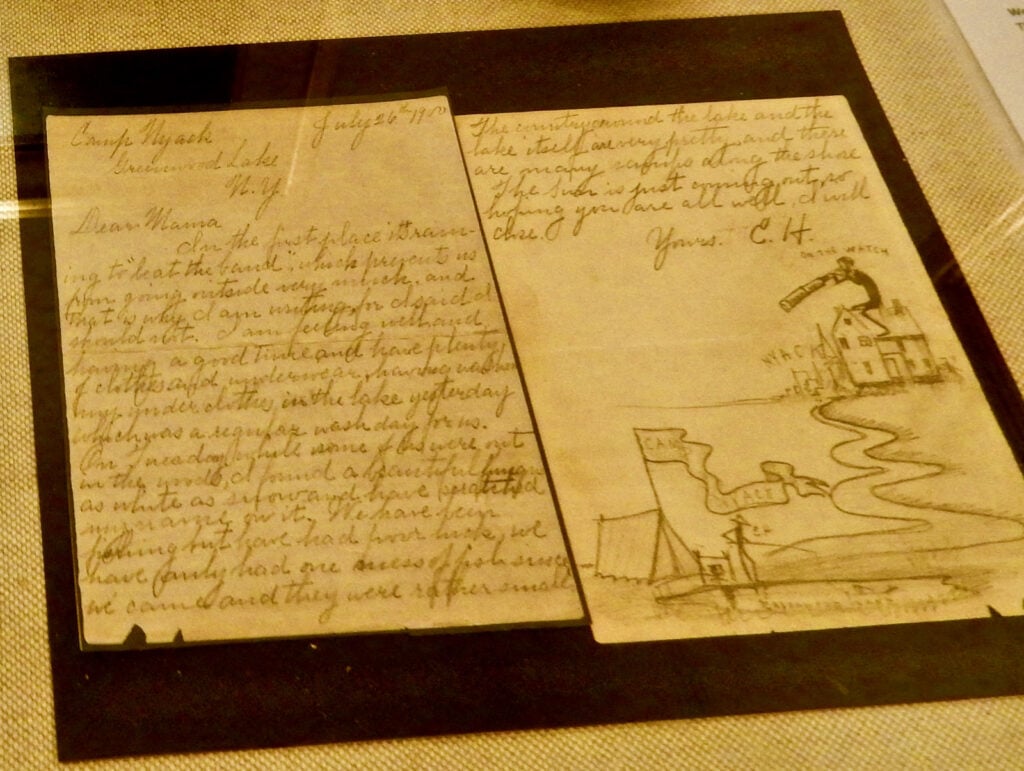 Camp Nyack July 26th 1900
Greenwood Lake
N.Y.
Dear Mama
In the first place it's rain-
ing to "beat the band", which prevents us
from going outside very much, and
that is why I am writing, for I said I
should not. I am feeling well and
having a good time and have plenty
of clothes and underwear, having washed
my under clothes in the lake yesterday
which was a regular wash day for us.
On Tuesday while some of us were out
in the woods, I found a beautiful fungus
as white as snow and have scratched
my name on it. We have been
fishing but have had poor luck, we
have only had one mess of fish since
we came and they were rather small.
The country around the lake and the
lake itself are very pretty and there
are many along the shore
The sun is just coming out, so
hoping you are all well, I will
close.
Yours. E. H.
ON THE WATCH
CAMP